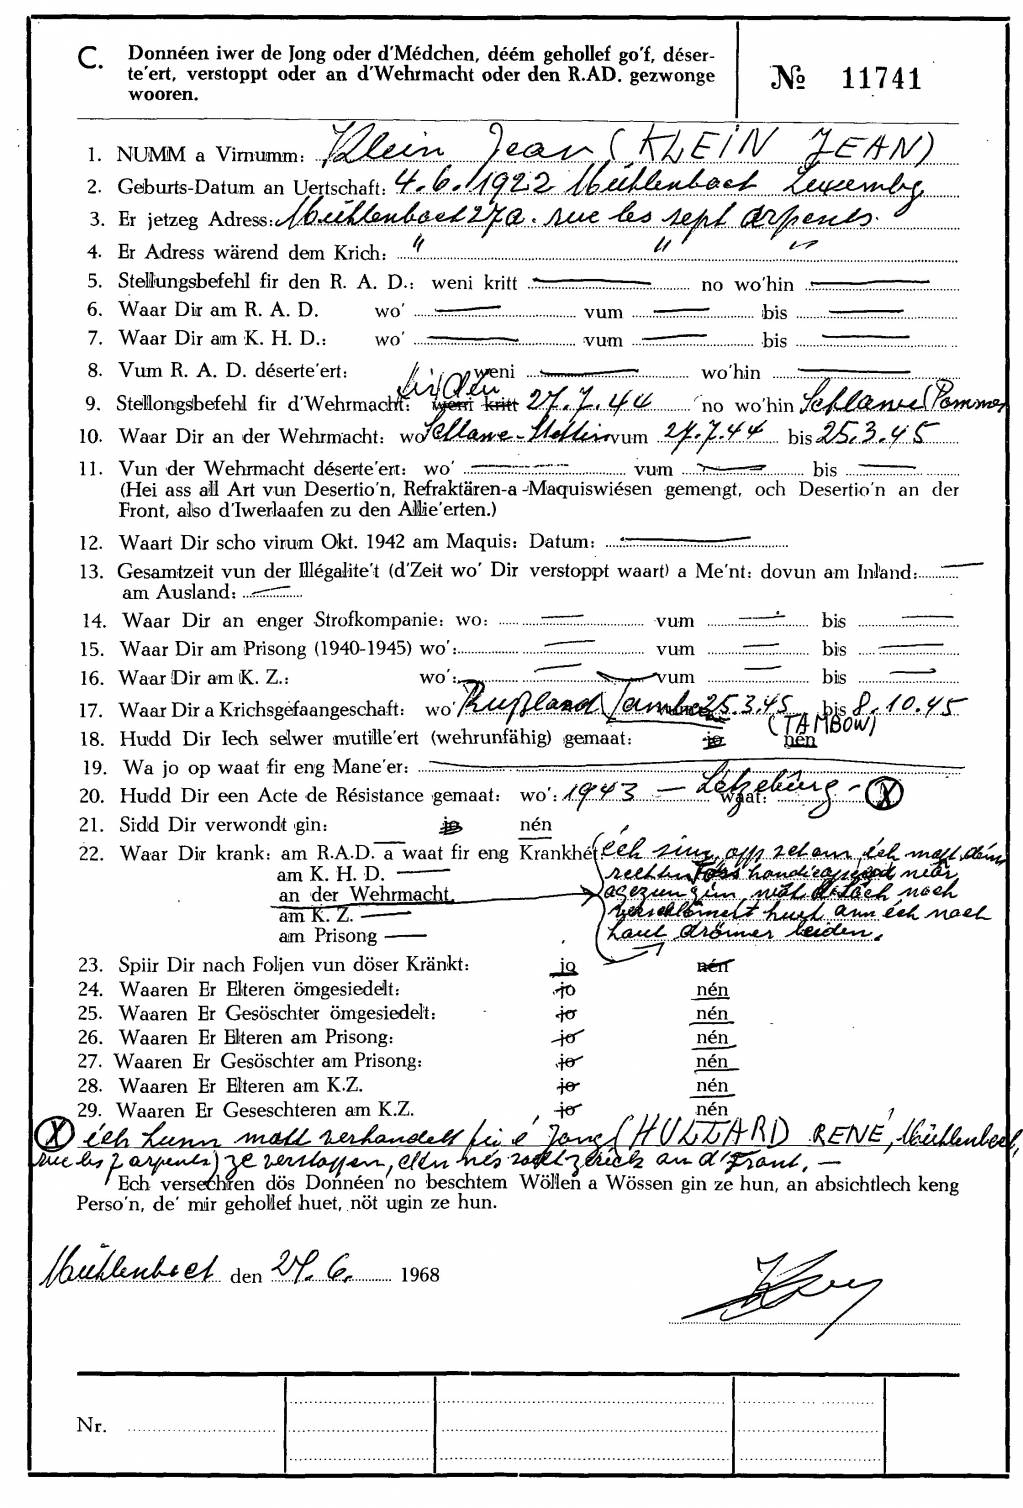 C. Donnéen iwer de Jong oder d'Médchen, déém gehollef go'f, déser-
te'ert, verstoppt oder an d'Wehrmacht oder den R.AD. gezwonge
wooren.
№ 11741
1. NUMM a Virnumm: Klein Jean (KLEIN JEAN)
2. Geburts-Datum an Uertschaft: 4.6.1922 Mühlenbach Luxembg
3. Er jetzeg Adress: Mühlenbach 27a. rue les sept arpents.
4. Er Adress wärend dem Krich: " " "
5. Stellungsbefehl fir den R. A. D.: weni kritt — no wo'hin —
6. Waar Dir am R. A. D. wo' — vum — bis —
7. Waar Dir am K. H. D.: wo' — vum — bis —
8. Vum R. A. D. déserte'ert: weni — wo'hin —
9. Stellongsbefehl fir d'Wehrmacht: weni kritt 27.7.44 no wo'hin Schlawe (Pommern
10. Waar Dir an der Wehrmacht: wo Schlawe - Stettin vum 27.7.44 bis 25.3.45
11. Vun der Wehrmacht déserte'ert: wo' — vum — bis —
(Hei ass all Art vun Desertio'n, Refraktären-a -Maquiswiésen gemengt, och Desertio'n an der
Front, also d'Iwerlaafen zu den Allie'erten.)
12. Waart Dir scho virum Okt. 1942 am Maquis: Datum: —
13. Gesamtzeit vun der Illégalite't (d'Zeit wo' Dir verstoppt waart) a Me'nt: dovun am Inland: —
am Ausland: —
14. Waar Dir an enger Strofkompanie: wo: — vum — bis —
15. Waar Dir am Prisong (1940-1945) wo': — vum — bis —
16. Waar Dir am K. Z.: wo': — vum — bis —
17. Waar Dir a Krichsgefaangeschaft: wo' Rußland 25.3.45 bis 8.10.45
(TAMBOW)
18. Hudd Dir Iech selwer mutille'ert (wehrunfähig) gemaat: jo nén
19. Wa jo op waat fir eng Mane'er: —
20. Hudd Dir een Acte de Résistance gemaat: wo': 1943 — waat: Letzebürg - (X)
21. Sidd Dir verwondt gin: jo nén
22. Waar Dir krank: am R.A.D. — a waat fir eng Krankhét: éch sin, och mat dém
am K. H. D. — rechten
an der Wehrmacht noch
am K. Z. — huet an éch nach
am Prisong — haut leiden.
23. Spiir Dir nach Foljen vun döser Kränkt: jo nén
24. Waaren Er Elteren ömgesiedelt: jo nén
25. Waaren Er Gesöschter ömgesiedelt: jo nén
26. Waaren Er Elteren am Prisong: jo nén
27. Waaren Er Gesöschter am Prisong: jo nén
28. Waaren Er Elteren am K.Z. jo nén
29. Waaren Er Geseschteren am K.Z. jo nén
(X) éch hunn matt verhandelt fir é Jong (HULTARD RENÉ, Mühlenbach,
rue les 7 arpents) ze verstoppen, an d'Front. —
Ech versechren dös Donnéen no beschtem Wöllen a Wössen gin ze hun, an absichtlech keng
Perso'n, de' mir gehollef huet, nöt ugin ze hun.
Mühlenbach den 27.6. 1968
Nr.